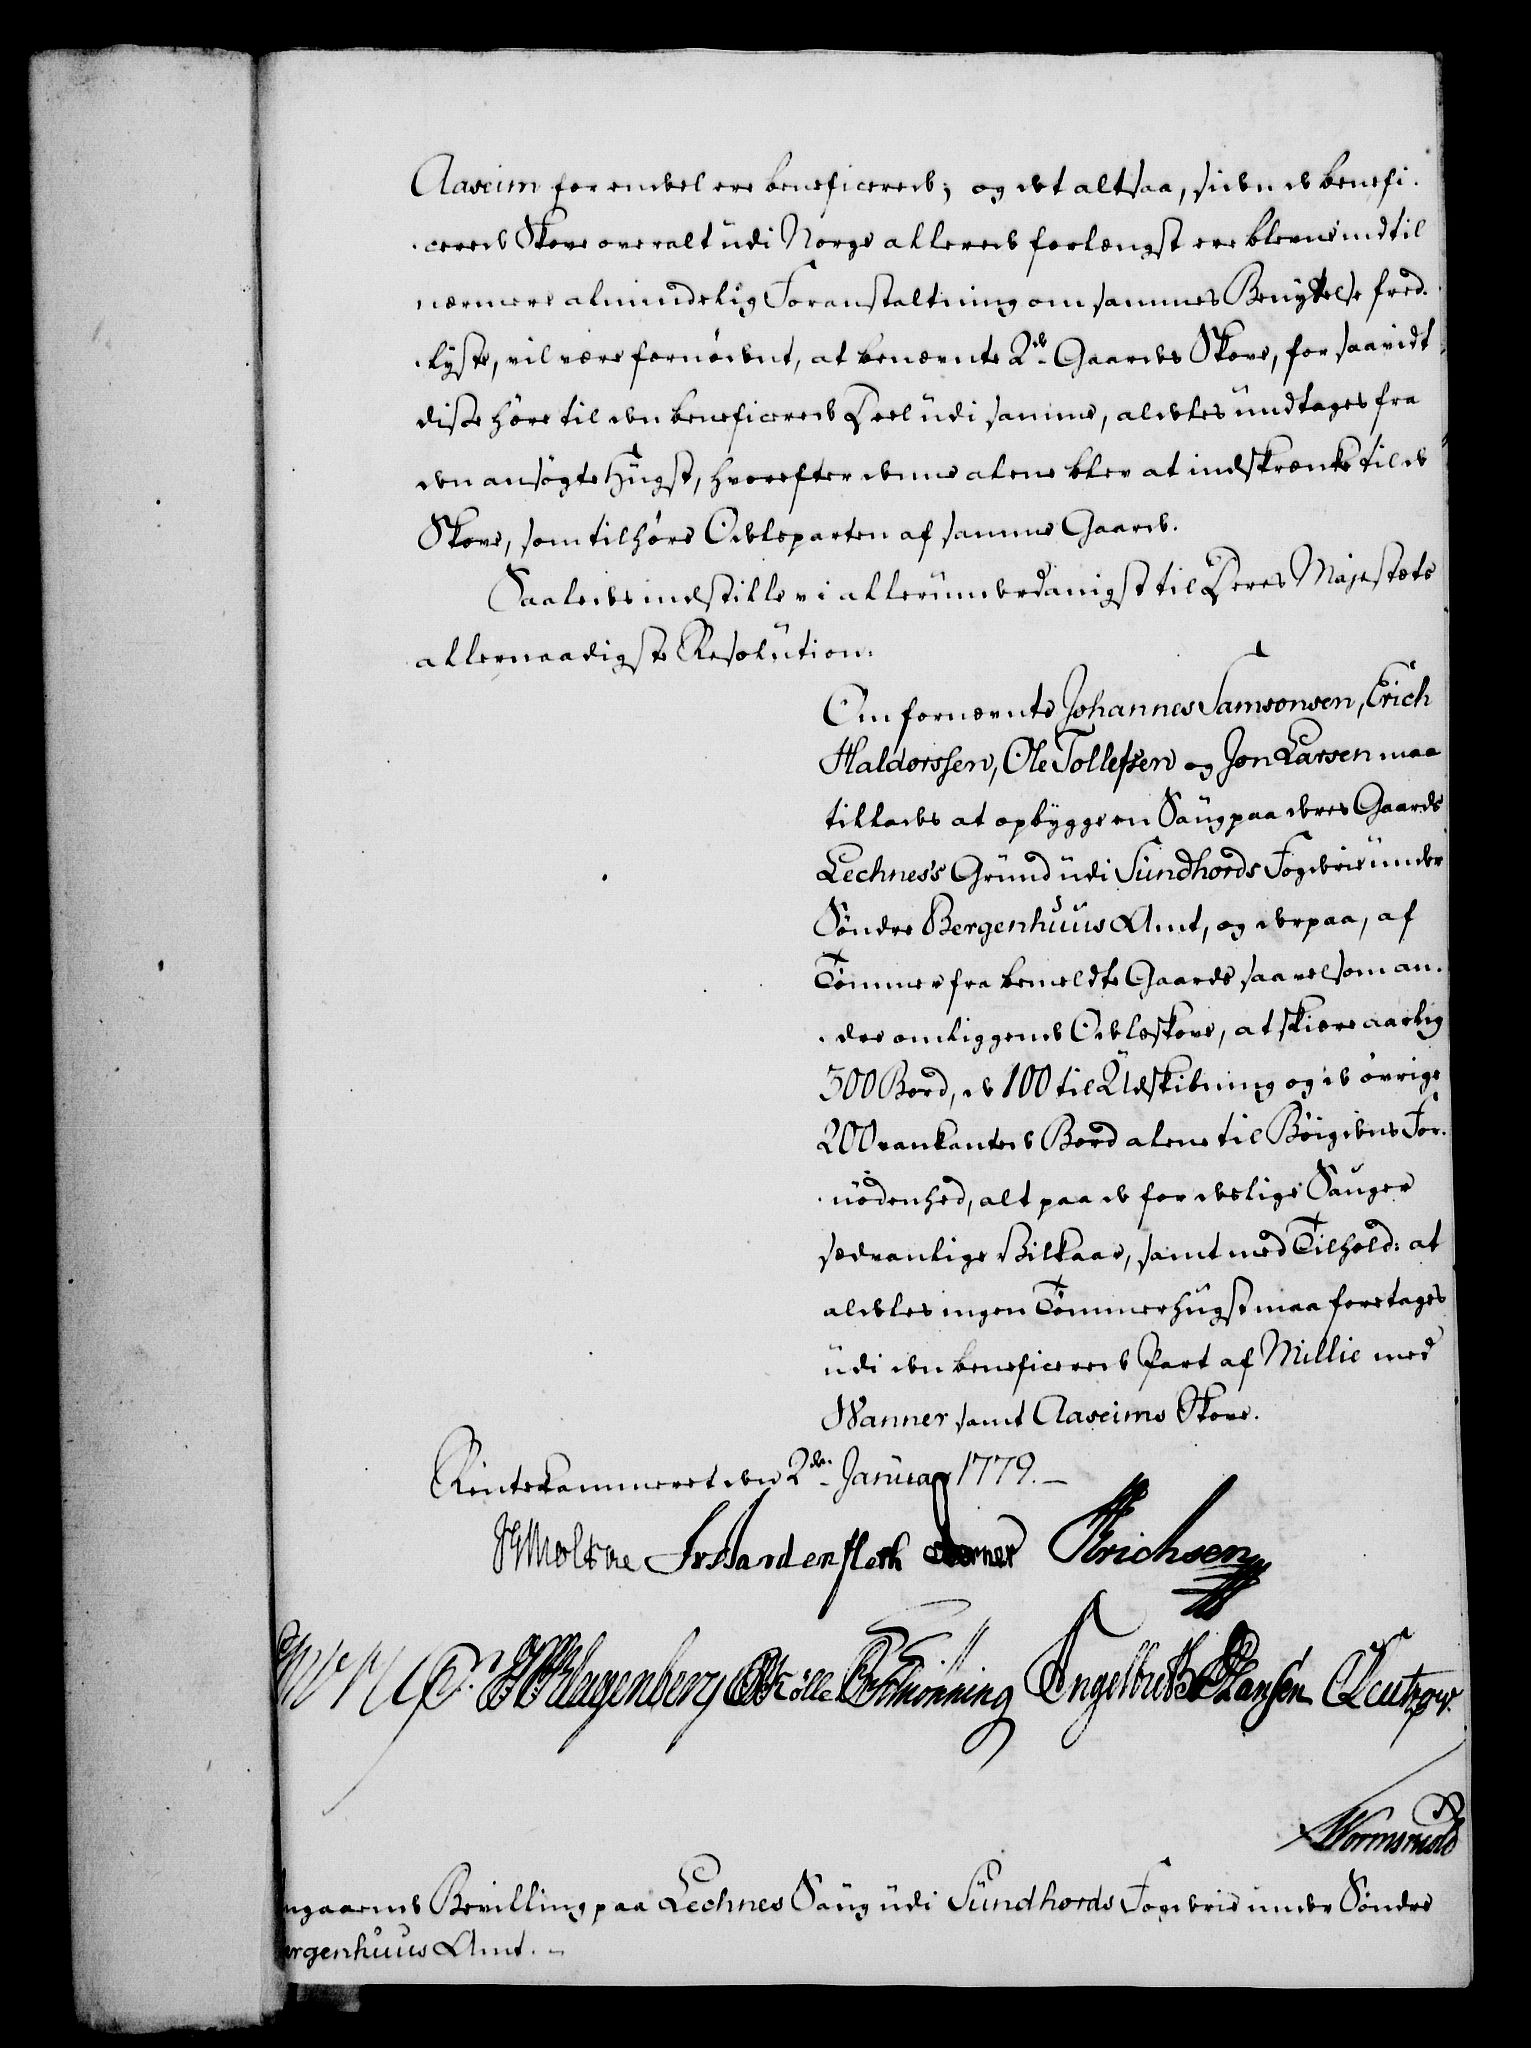 Aaseim for en deel ere beneficerede; og det altsaa, siden de benefi-
-cerede Skove overalt udi Norge allerede forlængst ere blevne indtil
nærmere almindelig Foranstaltning om sammes Benyttelse fred-
-lyste, vil være fornødent, at benævnte 2de Gaardes Skove, for saavidt
disse høre til den beneficerede Deel udi samme, aldeles undtages fra
den ansøgte Hugst, hvorefter denne alene blev at indskrænke til de
Skove, som tilhøre Odelsparten af samme Gaarde.
Saaledes indstille vi allerunderdanigst til Deres Majestæts
allernaadigste Resolution:
Om fornævnte Johannes Samsonsen, Erich
Haldorssen, Ole Tollefsen og Jon Larsen maa
tillades at opbygge en Saug paa deres Gaards
Lechnes's Grund udi Sundhords Fogderie under
Søndre Bergenhuus Amt, og derpaa, af
Tømmer fra bemeldte Gaards saavelsom an-
-dre omliggende Odelsskove, at skiære aarlig
300 Bord, de 100 til Udskibning og de øvrige
200 vankantede Bord alene til Bøigdens For-
-nødenhed, alt paa de for deslige Sauger
sædvanlige Vilkaar, samt med Tilhold: at
aldeles ingen Tømmerhugst maa foretages
udi den beneficerede Part af Millie med
Wanner samt Aaseims Skove.
Rentekammeret den 2den Januar 1779.
HMoltke FrAardenfleth Berner Erichsen
Klagenberg Kølle Schiønning Engelbret Hansen Leutzow.
Wormskiold
Angaaende Bevilling paa Lechnes Saug udi Sundhords Fogderie under Søndre
Bergenhuus Amt.